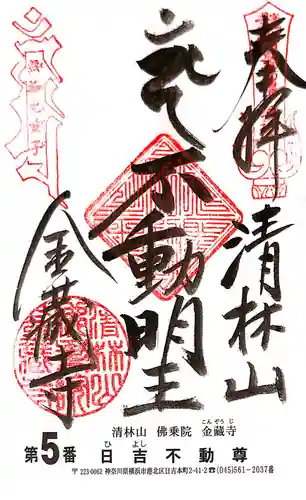 奉拝
清林山
不動明王
金蔵寺
清林山 佛乗院 金藏寺
こんぞうじ
第5番 日吉不動尊
ひよし
〒223-0062 神奈川県横浜市港北区日吉本町2-41-2 ☎(045)561-2037番